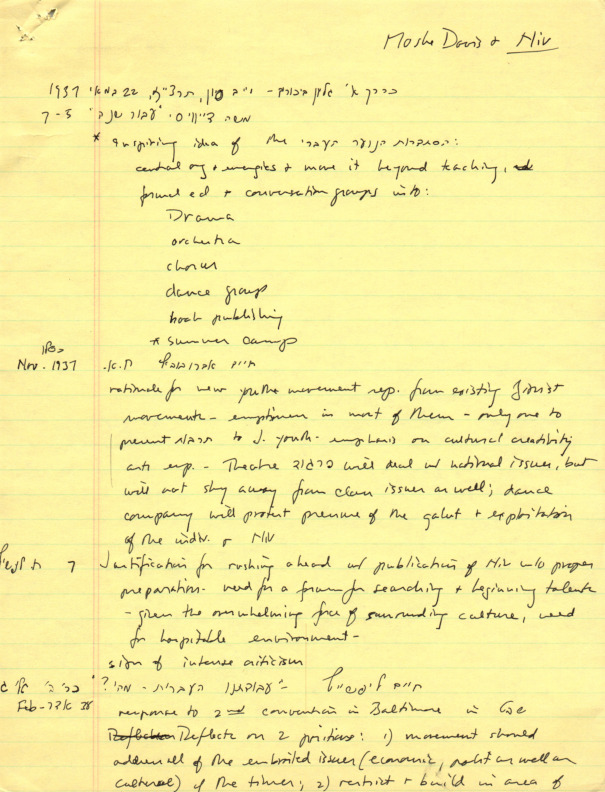 Moshe Davis & Niv
כרך א' גליון ביכורים - י"ב סיון, תרצ"ז, 22 במאי 1937
משה דייוויס "עבור שנה" 7-3
* Inspiring idea of the הסתדרות הנוער העברי:
central org & energies & move it beyond teaching,
formal ed + conversation groups into:
Drama
orchestra
chorus
dance group
book publishing
* summer camp
כסלו
Nov. 1937 חיים אברבוביץ ח.א.
rationale for new youth movement sep. from existing Zionist
movements - emptiness in most of them - only one to
present תרבות to J. youth - emphasis on cultural creativity
arts esp. - Theatre פרגוד will deal w/ national issues, but
will not shy away from class issues as well; dance
company will protest pressure of the galut + exploitation
of the indiv. & Niv
7 Justification for rushing ahead w/ publication of Niv w/o proper
preparation - need for a forum for searching + beginning talents
- given the overwhelming force of surrounding culture, need
for hospitable environment -
sign of intense criticism
חיים ליפשיץ - "עבודתנו העברית - מהי?" כר' ב' גל' ג
Feb - אדר
response to 2nd convention in Baltimore in Dec
Reflects on 2 positions: 1) movement should
address all of the embroiled issues (economic, polit as well as
cultural) of the times; 2) restrict & build in area of